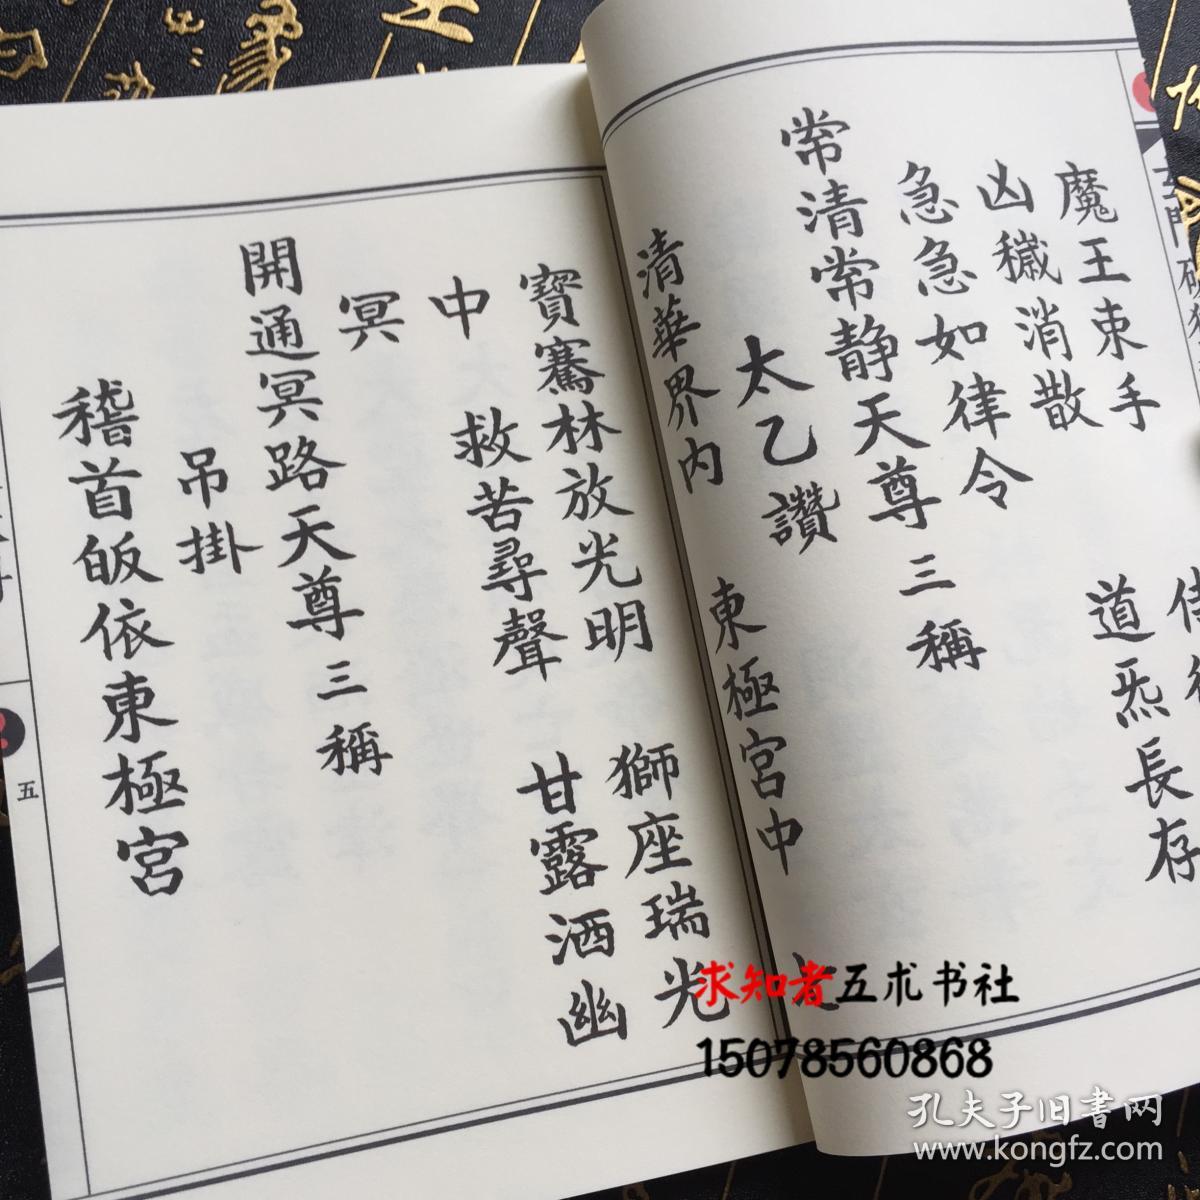 魔王束手
凶穢消散　道炁長存
急急如律令
常清常静天尊三稱
太乙讚
清華界内　東極宮中
寶騫林放光明　獅座瑞光
中　救苦尋聲　甘露洒幽
冥
開通冥路天尊三稱
吊掛
稽首皈依東極宮
五
求知者五术书社
15078560868
孔夫子旧书网
www.kongfz.com